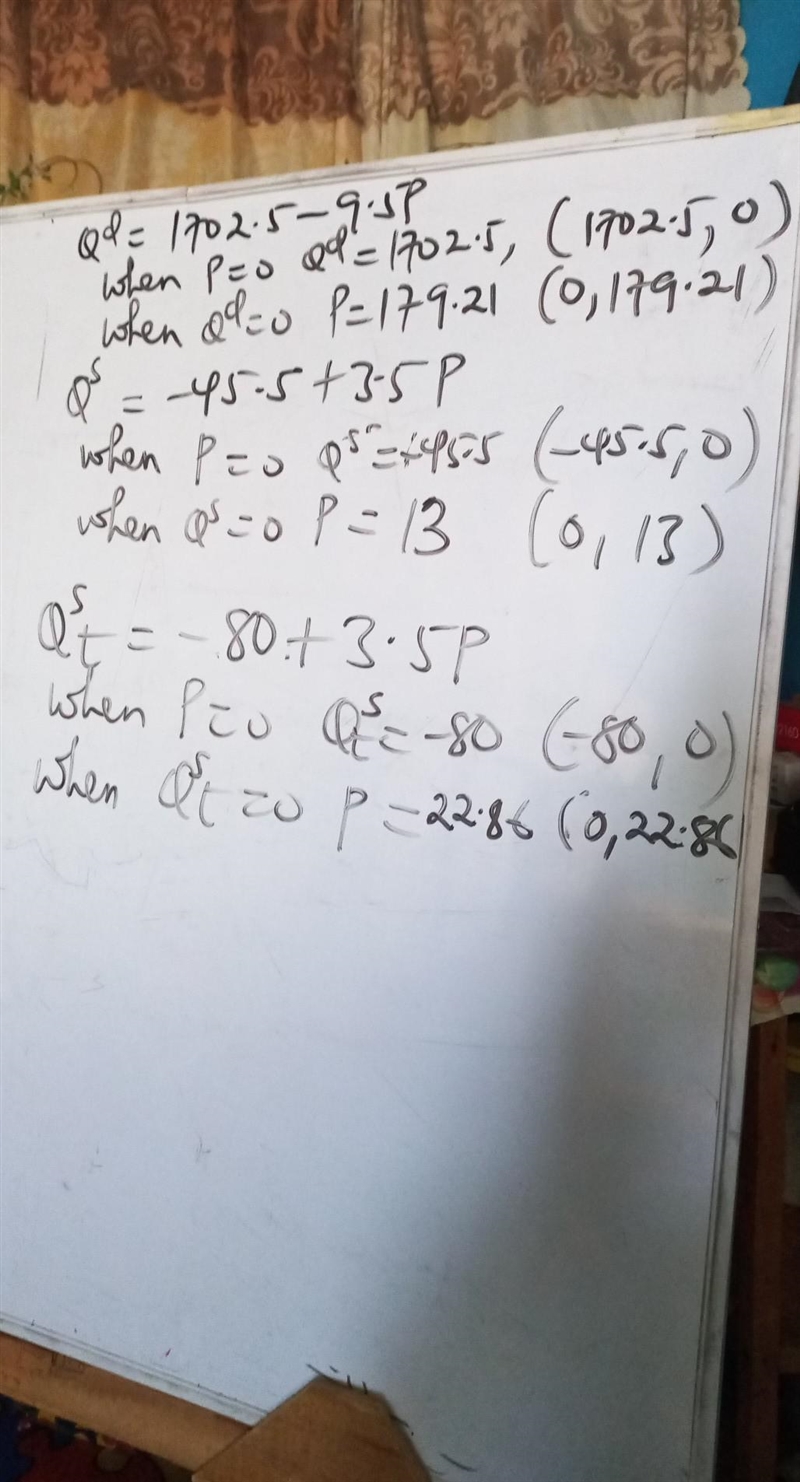 Qd = 1702.5 - 9.5P
when P=0 Qd = 1702.5, (1702.5, 0)
when Qd=0 P=179.21 (0, 179.21)
Qs = -45.5 + 3.5P
when P=0 Qs = -45.5 (-45.5, 0)
when Qs=0 P = 13 (0, 13)
Qst = -80 + 3.5P
when P=0 Qst = -80 (-80, 0)
when Qst = 0 P = 22.86 (0, 22.86